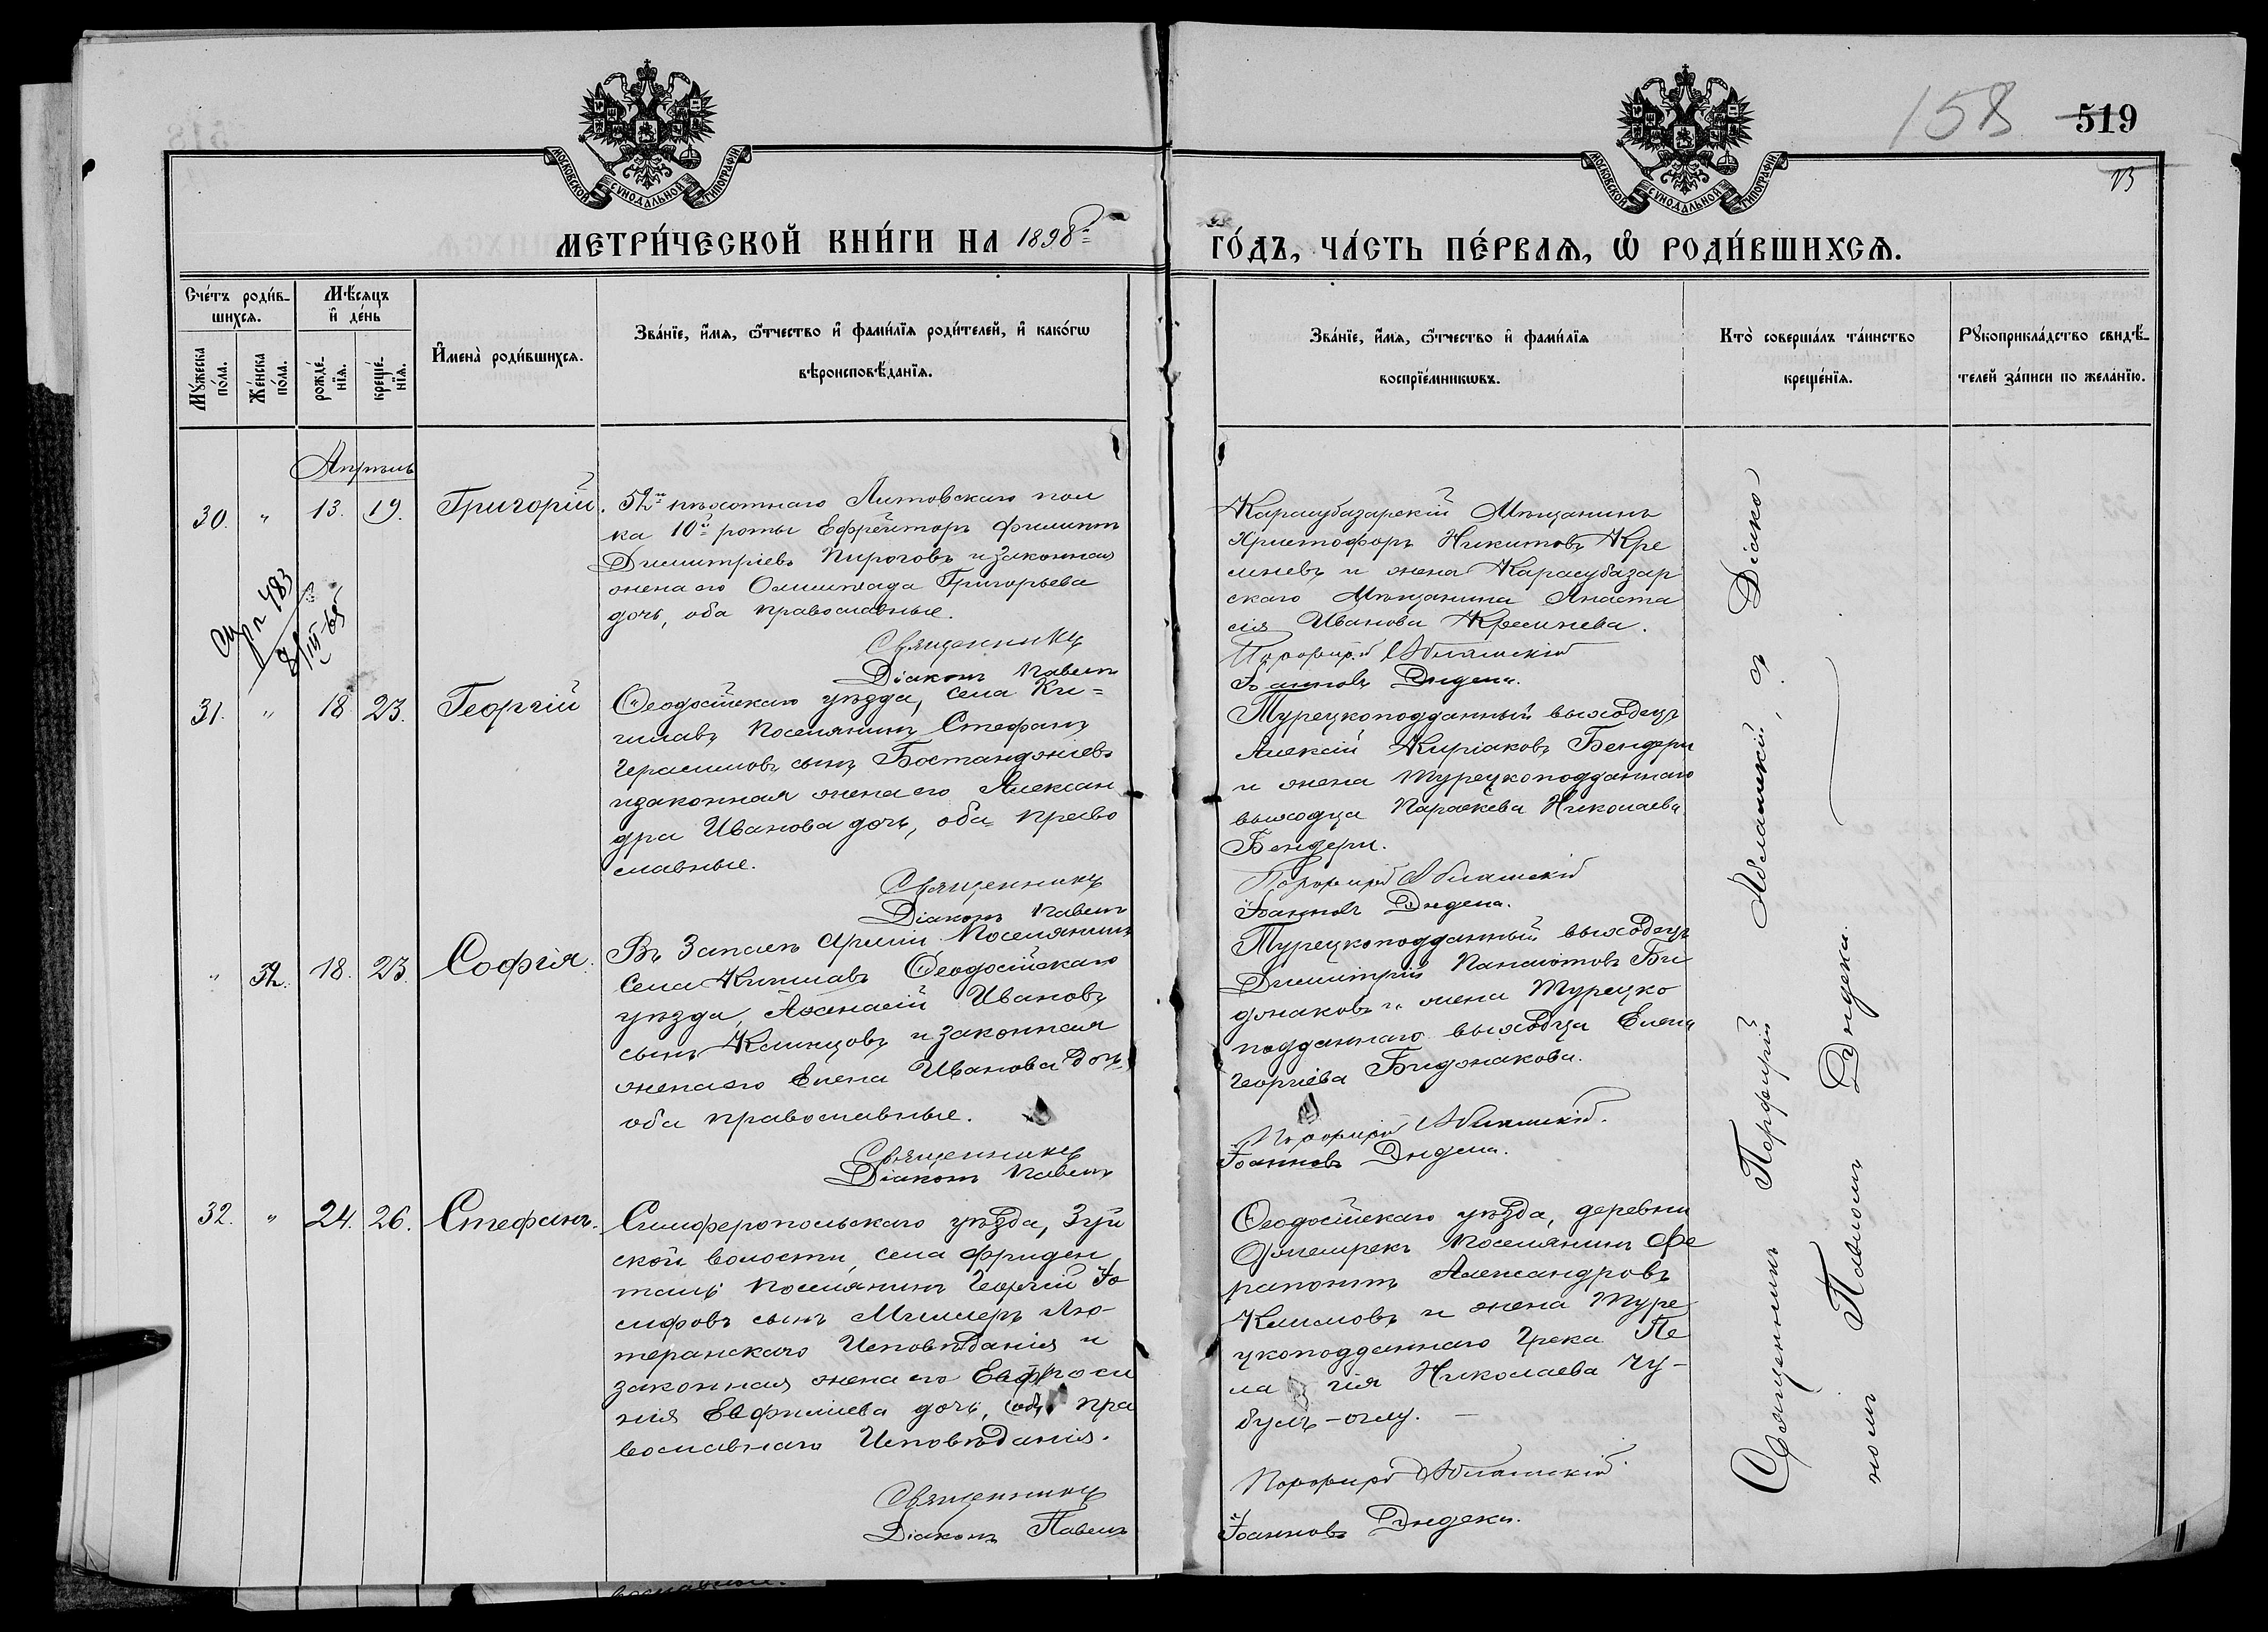 МОСКОВСКОЙ СУНОДАЛЬНОЙ ТИПОГРАФІИ
МОСКОВСКОЙ СУНОДАЛЬНОЙ ТИПОГРАФІИ
158
519
МЕТРИ́ЧЕСКОЙ КНИ́ГИ НА 1898й
ГО́ДЪ, ЧА́СТЬ ПЕ́РВАЯ, Ѡ РОДИ́ВШИХСЯ.
Сче́тъ роди́в-
шихся.
Мѣ́сяцъ
и де́нь
Мꙋ́жеска по́ла.
Же́нска по́ла.
рожде́-
нїя.
креще́-
нїя.
И҆мена̀ роди́вшихся.
Зва́нїе, и҆́мя, ѻ҆́тчество и҆ фами́лїя роди́телей, и҆ како́гѡ
вѣроисповѣ́данїя.
Зва́нїе, и҆́мя, ѻ҆́тчество и҆ фами́лїя
воспрїе́мникѡвъ.
Кто̀ соверша́лъ та́инство
креще́нїя.
Рꙋкоприкла́дство свидѣ́-
телей за́писи по жела́нїю.
Апрѣль
30.
"
13.
19.
Григорій.
52го пѣхотнаго Литовскаго пол
ка 10й роты Ефрейторъ Филиппъ
Димитріевъ Пироговъ и законная
жена его Олимпіада Григорьева
дочь, оба православные.
Священникъ
Діаконъ Павелъ
Карасубазарскій Мѣщанинъ
Христофоръ Никитовъ Кре
миневъ и жена Карасубазар
скаго Мѣщанина Анаста
сія Иванова Креминева.
Порфирій Аблашскій
Іоанновъ Дндена.
483
8/III-65
31.
"
18
23.
Георгій
Ѳеодосійскаго уѣзда, села Ки-
шлавъ Поселянинъ Стефанъ
Герасимовъ сынъ Бостанджіевъ
и законная жена его Алексан
дра Иванова дочь, оба право
славные.
Священникъ
Діаконъ Павелъ
Турецкоподданный выходецъ
Алексій Киріаковъ Бендери
и жена турецкоподданнаго
выходца Параскева Николаева
Бендери.
Порфирій Аблашскій
Іоанновъ Дндена.
"
32.
18.
23
Софія.
Въ Запасѣ Арміи Поселянинъ
села Кишлавъ Ѳеодосійскаго
уѣзда, Аѳанасій Ивановъ
сынъ Клинцовъ и законная
жена его Елена Иванова дочь,
оба православные.
Священникъ
Діаконъ Павелъ
Турецкоподданный выходецъ
Димитрій Панаіотовъ Би
джаковъ и жена Турецко
подданнаго выходца Елена
Георгіева Биджакова.
Порфирій Аблашскій.
Іоанновъ Дндена.
32.
"
24.
26.
Стефанъ.
Симферопольскаго уѣзда, Зуй
ской волости, села Фриден
таль поселянинъ Георгій Іо
сифовъ сынъ Миллеръ Лю-
теранскаго Исповѣданія и
законная жена его Евфроси
нія Евфиміева дочь, пра
вославнаго Исповѣданія.
Священникъ
Діаконъ Павелъ
Ѳеодосійскаго уѣзда, деревни
поселянинъ Фе
рапонтъ Александровъ
Климовъ и жена Туре
цкоподданнаго Грека Пе
ла гія Николаева Чу-
булъ-оглу.
Порфирій Аблашскій
Іоанновъ Дндека.
Священникъ Порфирій Аблашскій, съ Діако
номъ Павломъ Дндека.